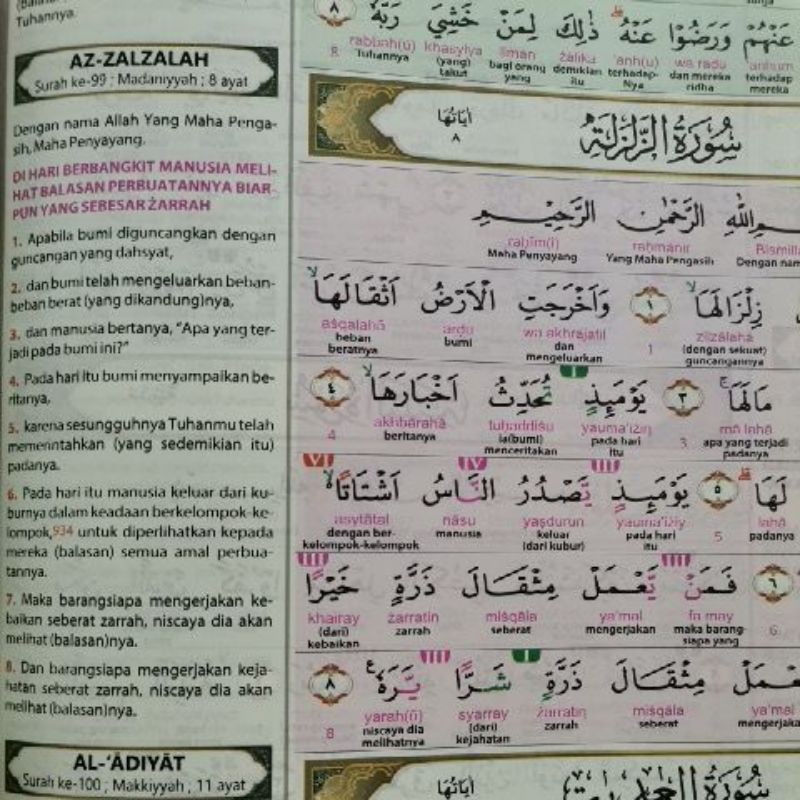 Tuhannya.
AZ-ZALZALAH
Surah ke-99 ; Madaniyyah ; 8 ayat
Dengan nama Allah Yang Maha Penga-
sih, Maha Penyayang.
DI HARI BERBANGKIT MANUSIA MELI-
HAT BALASAN PERBUATANNYA BIAR-
PUN YANG SEBESAR ŻARRAH
1. Apabila bumi diguncangkan dengan
guncangan yang dahsyat,
2. dan bumi telah mengeluarkan beban-
beban berat (yang dikandung)nya,
3. dan manusia bertanya, "Apa yang ter-
jadi pada bumi ini?"
4. Pada hari itu bumi menyampaikan be-
ritanya,
5. karena sesungguhnya Tuhanmu telah
memerintahkan (yang sedemikian itu)
padanya.
6. Pada hari itu manusia keluar dari ku-
burnya dalam keadaan berkelompok-ke-
lompok,934 untuk diperlihatkan kepada
mereka (balasan) semua amal perbua-
tannya.
7. Maka barangsiapa mengerjakan ke-
baikan seberat zarrah, niscaya dia akan
melihat (balasan)nya.
8. Dan barangsiapa mengerjakan keja-
hatan seberat zarrah, niscaya dia akan
melihat (balasan)nya.
AL-'ĀDIYĀT
Surah ke-100 ; Makkiyyah ; 11 ayat
عَنْهُمْ وَرَضُوْا عَنْهُ ذٰلِكَ لِمَنْ خَشِيَ رَبَّهٗ ٨
'anhum wa raḍū 'anh(u) żālika liman khasyiya rabbah(ū) 8
terhadap mereka dan mereka ridha terhadap-Nya demikian itu bagi orang yang (yang) takut Tuhannya
سُوْرَةُ الزَّلْزَلَةِ
اٰيَاتُهَا ٨
الرَّحْمٰنِ الرَّحِيْمِ
raḥmānir raḥīm(i)
Yang Maha Pengasih Maha Penyayang
زِلْزَالَهَا ١ وَاَخْرَجَتِ الْاَرْضُ اَثْقَالَهَا
zilzālahā 1 wa akhrajatil arḍu aṡqālahā
(dengan sekuat) guncangannya dan mengeluarkan bumi beban beratnya
مَا لَهَا ٣ يَوْمَىِٕذٍ تُحَدِّثُ اَخْبَارَهَا ٤
mā lahā 3 yauma'iżin tuḥaddiṡu akhbārahā 4
apa yang terjadi padanya pada hari itu ia(bumi) menceritakan beritanya
لَهَا ٥ يَوْمَىِٕذٍ يَّصْدُرُ النَّاسُ اَشْتَاتًا
lahā 5 yauma'iżiy yaṣdurun nāsu asytātal
padanya pada hari itu keluar (dari kubur) manusia dengan ber-kelompok-kelompok
٦ فَمَنْ يَّعْمَلْ مِثْقَالَ ذَرَّةٍ خَيْرًا
6 fa may ya'mal miṡqāla żarratin khairay
maka barang siapa yang mengerjakan seberat zarrah (dari) kebaikan
مِثْقَالَ ذَرَّةٍ شَرًّا يَّرَهٗ ٨
ya'mal miṡqāla żarratin syarray yarah(ū) 8
seberat zarrah (dari) kejahatan niscaya dia melihatnya
اٰيَاتُهَا